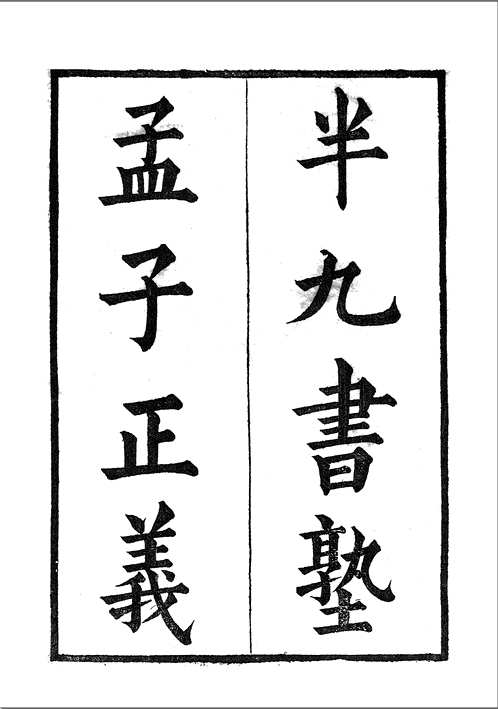 半九書塾
孟子正義